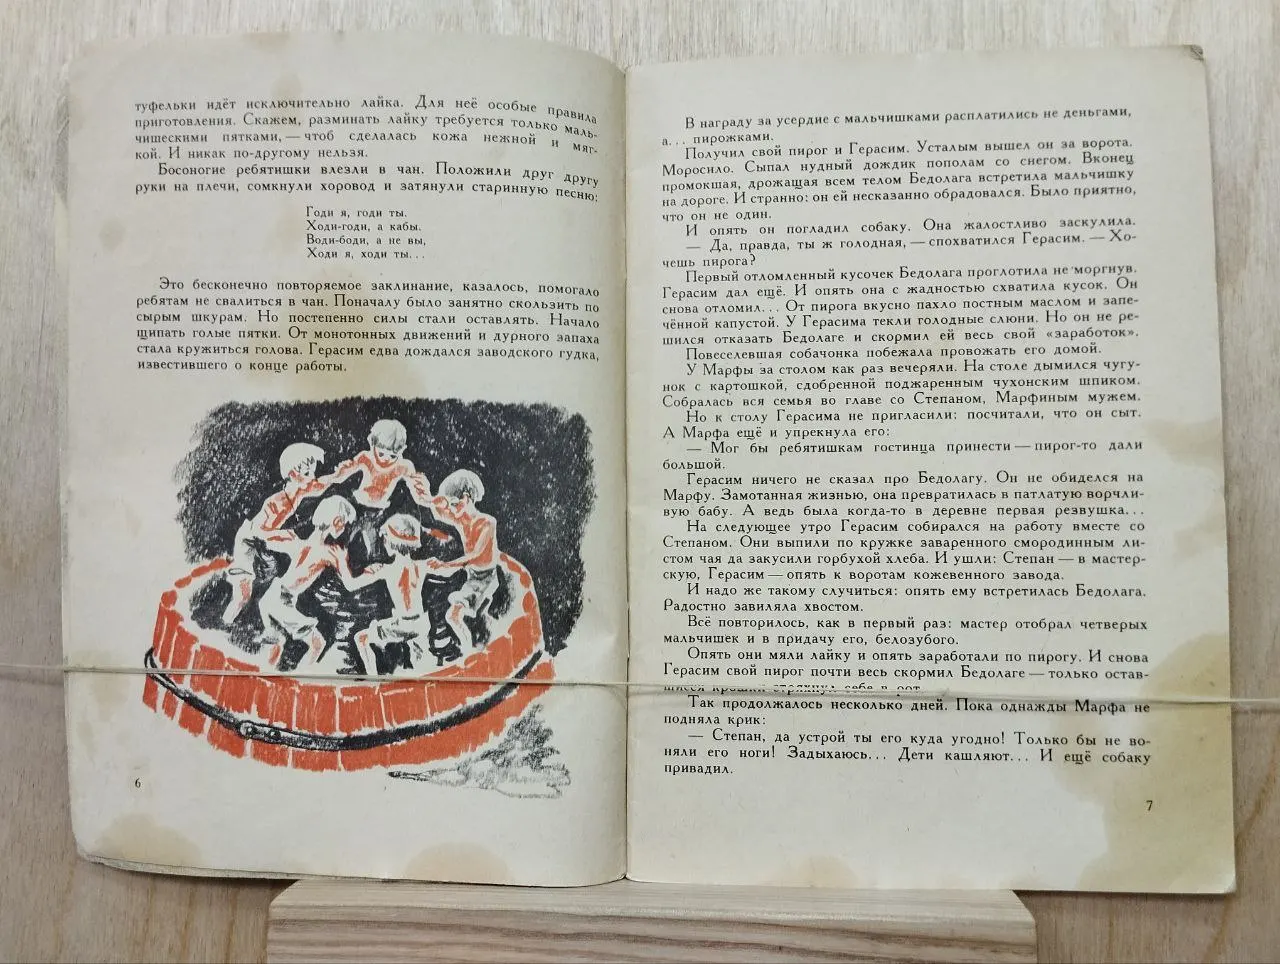 туфельки идёт исключительно лайка. Для неё особые правила
приготовления. Скажем, разминать лайку требуется только маль-
чишескими пятками, — чтоб сделалась кожа нежной и мяг-
кой. И никак по-другому нельзя.
Босоногие ребятишки влезли в чан. Положили друг другу
руки на плечи, сомкнули хоровод и затянули старинную песню:
Годи я, годи ты.
Ходи-годи, а кабы.
Води-боди, а не вы,
Ходи я, ходи ты...
Это бесконечно повторяемое заклинание, казалось, помогало
ребятам не свалиться в чан. Поначалу было занятно скользить по
сырым шкурам. Но постепенно силы стали оставлять. Начало
щипать голые пятки. От монотонных движений и дурного запаха
стала кружиться голова. Герасим едва дождался заводского гудка,
известившего о конце работы.
6
В награду за усердие с мальчишками расплатились не деньгами,
а... пирожками.
Получил свой пирог и Герасим. Усталым вышел он за ворота.
Моросило. Сыпал нудный дождик пополам со снегом. Вконец
промокшая, дрожащая всем телом Бедолага встретила мальчишку
на дороге. И странно: он ей несказанно обрадовался. Было приятно,
что он не один.
И опять он погладил собаку. Она жалостливо заскулила.
— Да, правда, ты ж голодная, — спохватился Герасим. — Хо-
чешь пирога?
Первый отломленный кусочек Бедолага проглотила не моргнув.
Герасим дал ещё. И опять она с жадностью схватила кусок. Он
снова отломил... От пирога вкусно пахло постным маслом и запе-
чённой капустой. У Герасима текли голодные слюни. Но он не ре-
шился отказать Бедолаге и скормил ей весь свой «заработок».
Повеселевшая собачонка побежала провожать его домой.
У Марфы за столом как раз вечеряли. На столе дымился чугу-
нок с картошкой, сдобренной поджаренным чухонским шпиком.
Собралась вся семья во главе со Степаном, Марфиным мужем.
Но к столу Герасима не пригласили: посчитали, что он сыт.
А Марфа ещё и упрекнула его:
— Мог бы ребятишкам гостинца принести — пирог-то дали
большой.
Герасим ничего не сказал про Бедолагу. Он не обиделся на
Марфу. Замотанная жизнью, она превратилась в патлатую ворчли-
вую бабу. А ведь была когда-то в деревне первая резвушка...
На следующее утро Герасим собирался на работу вместе со
Степаном. Они выпили по кружке заваренного смородинным ли-
стом чая да закусили горбухой хлеба. И ушли: Степан — в мастер-
скую, Герасим — опять к воротам кожевенного завода.
И надо же такому случиться: опять ему встретилась Бедолага.
Радостно завиляла хвостом.
Всё повторилось, как в первый раз: мастер отобрал четверых
мальчишек и в придачу его, белозубого.
Опять они мяли лайку и опять заработали по пирогу. И снова
Герасим свой пирог почти весь скормил Бедолаге — только остав-
шиеся крошки стряхнул себе в рот.
Так продолжалось несколько дней. Пока однажды Марфа не
подняла крик:
— Степан, да устрой ты его куда угодно! Только бы не во-
няли его ноги! Задыхаюсь... Дети кашляют... И ещё собаку
привадил.
7